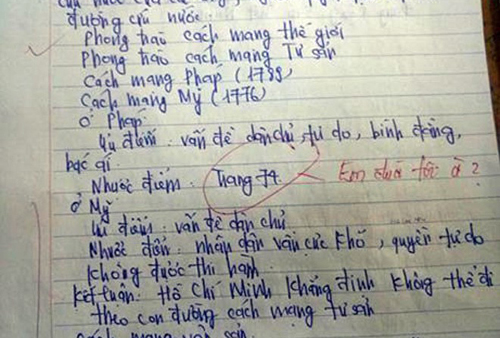 đường cứu nước
Phong trào cách mạng thế giới
Phong trào cách mạng Tư sản
Cách mạng Pháp (1789)
Cách mạng Mỹ (1776)
Ở Pháp
Ưu điểm: vấn đề dân chủ, tự do, bình đẳng,
bác ái.
Nhược điểm: Trang 74. Em đùa tôi à?
Ở Mỹ
Ưu điểm: vấn đề dân chủ
Nhược điểm: nhân dân vẫn cực khổ, quyền tự do
không được thi hành.
Kết luận: Hồ Chí Minh khẳng định không thể đi
theo con đường cách mạng tư sản
cách mạng vô sản